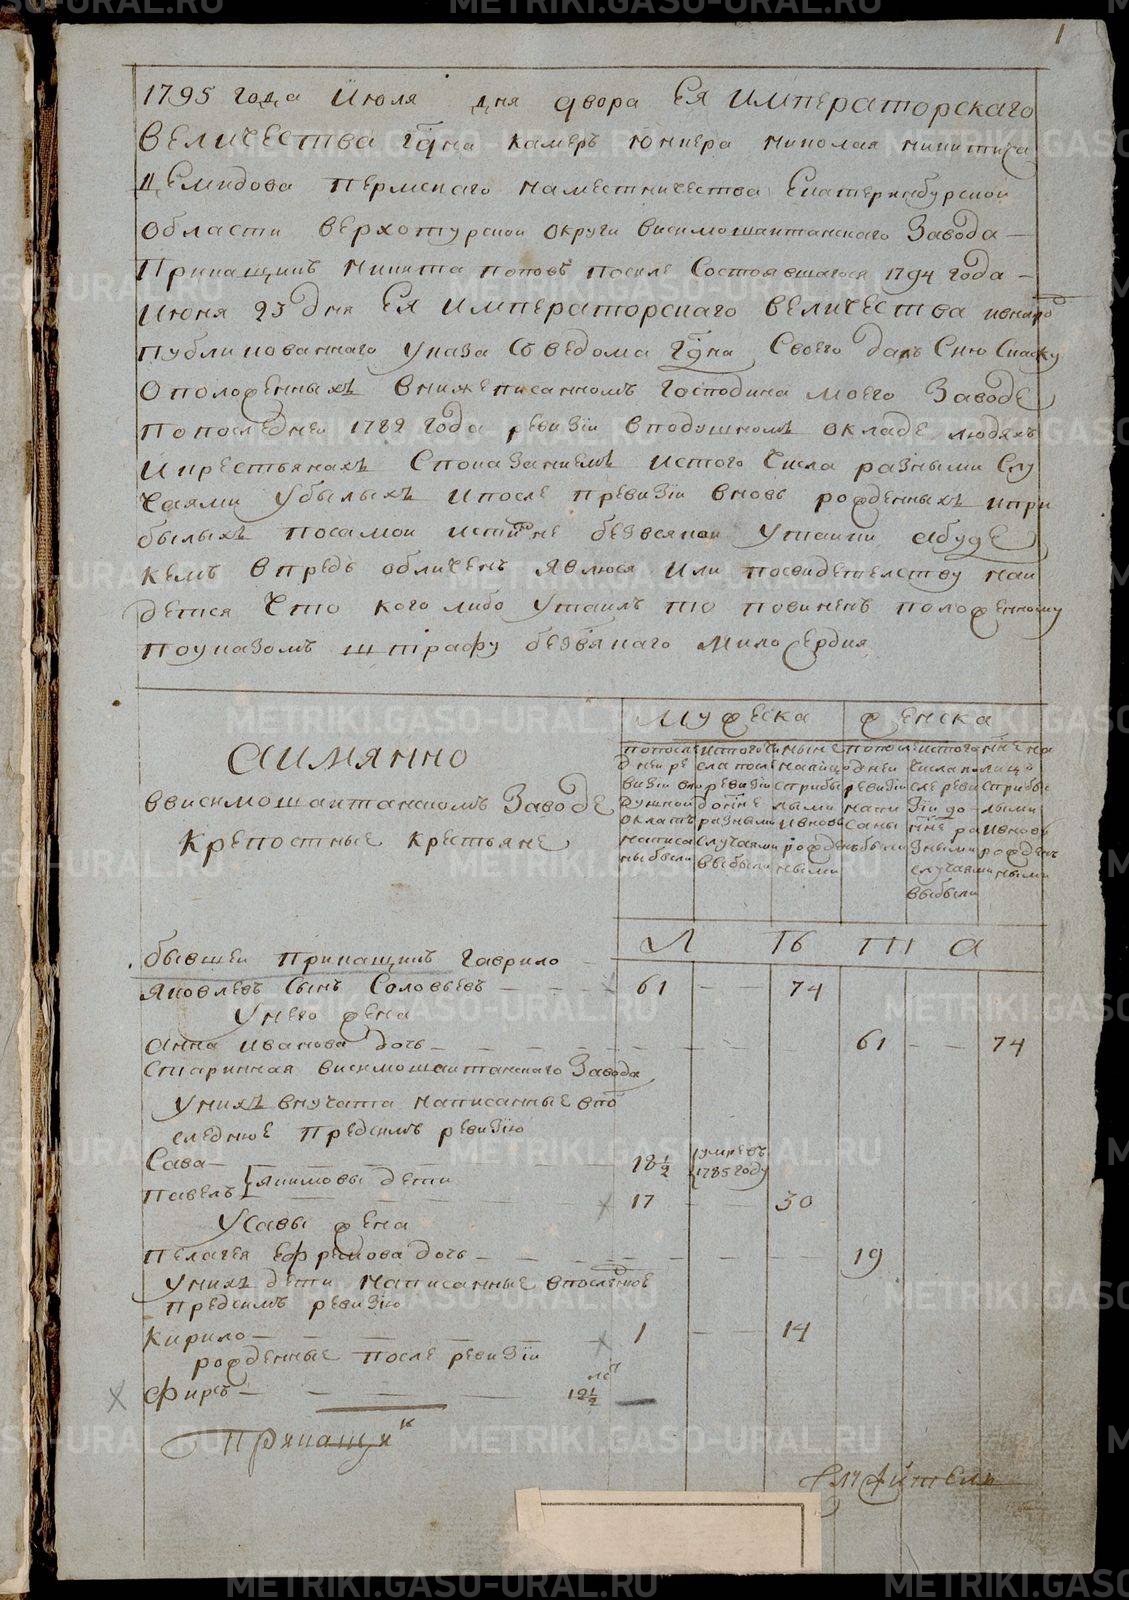 1
1795 года Июля дня двора Ея Императорскаго
величества гдна камеръ юнкера николая никитича
Демидова Пермскаго наместничества Екатеринбурской
области верхотурской округи висимошаитанскаго Завода
Прикащикъ никита поповъ после состоявшагося 1794 года
Июня 23 дня Ея Императорскаго величества
публикованнаго указа съведома гдна своего далъ сию скаску
оположенныхъ внижеписанномъ господина моего Заводе
попоследней 1782 года ревизiи вподушномъ окладе людяхъ
икрестьянахъ спонаказаниемъ истого числа разными слу
чаями убылыхъ ипосле ревизiи вновь рожденныхъ ипри
былыхъ посамой истинне безвсякой утаики абуде
кемъ впредь обличенъ явлюся или посвидетелству наи
дется что кого либо утаилъ то повиненъ положенному
поуказомъ штрафу безвсякаго милосердия
мужеска женска
аимянно
ввисимошаитанскомъ Заводе
крепостные крестьяне
попосле дней ре визiи впо душной окладъ написа ны были
истого чи сла после ревизiи до нне разными случаями выбыли
ныне налицо сприбы лыми ивновь рожден ными
попосл дней ревизiи напи саны были
истого числа по сле реви зiи до нне ра зными случаями выбыли
нне на лицо сприбы лыми ивновь рожден ными
Л Ѣ Т А
бывшеи прикащикъ гаврило
яковлевъ сынъ Соловьевъ 61 74
Унего жена
анна иванова дочь 61 74
Старинная висимошаитанскаго Завода
унихъ внучата написанные впо
следнюе предсимъ ревизiю
Сава 18 1/2 умревъ 1785 году
Павелъ якимовы дети 17 30
Усавы жена
пелагея ефремова дочь 19
унихъ дети написанные впоследнюе
предсимъ ревизiю
Кирило 1 14
рожденные после ревизiи
Фирсъ 12 1/2
Прикащик
METRIKI.GASO-URAL.RU